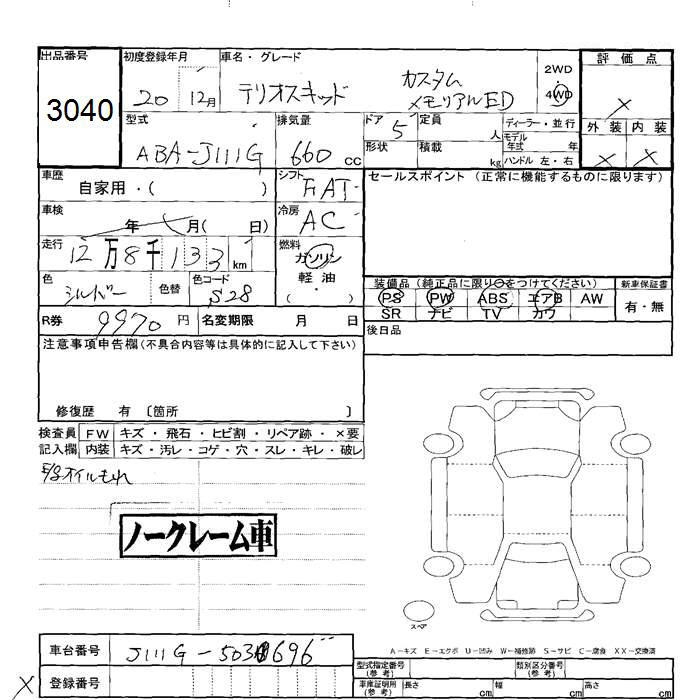 出品番号 初度登録年月 車名・グレード 評価点
3040 20 12月 テリオスキッド カスタム メモリアルED 2WD 4WD X
型式 排気量 ドア 定員 ディーラー・並行 外装 内装
ABA-J111G 660 cc 5 人 モデル年式 年 X X
形状 積載 kg ハンドル 左・右
車歴 シフト セールスポイント (正常に機能するものに限ります)
自家用・( ) FAT
車検 冷房
年 月( 日) AC
走行 燃料
12万8千133km ガソリン
色 色替 色コード 軽油
シルバー S28 ( ・ )
装備品 (純正品に限り○をつけてください) 新車保証書
PS PW ABS エアB AW 有・無
SR ナビ TV カワ
R券 9970 円 名変期限 月 日 後日品
注意事項申告欄(不具合内容等は具体的に記入して下さい)
修復歴 有 〔箇所 〕
検査員 FW キズ・飛石・ヒビ割・リペア跡・×要
記入欄 内装 キズ・汚レ・コゲ・穴・スレ・キレ・破レ
オイルもれ
ノークレーム車
スペア
A-キズ E-エクボ U-凹み W-補修跡 S-サビ C-腐食 XX-交換済
車台番号 J111G-503696
X 登録番号
型式指定番号 (参考) 類別区分番号 (参考)
車庫証明用 (参考) 長さ cm 幅 cm 高さ cm